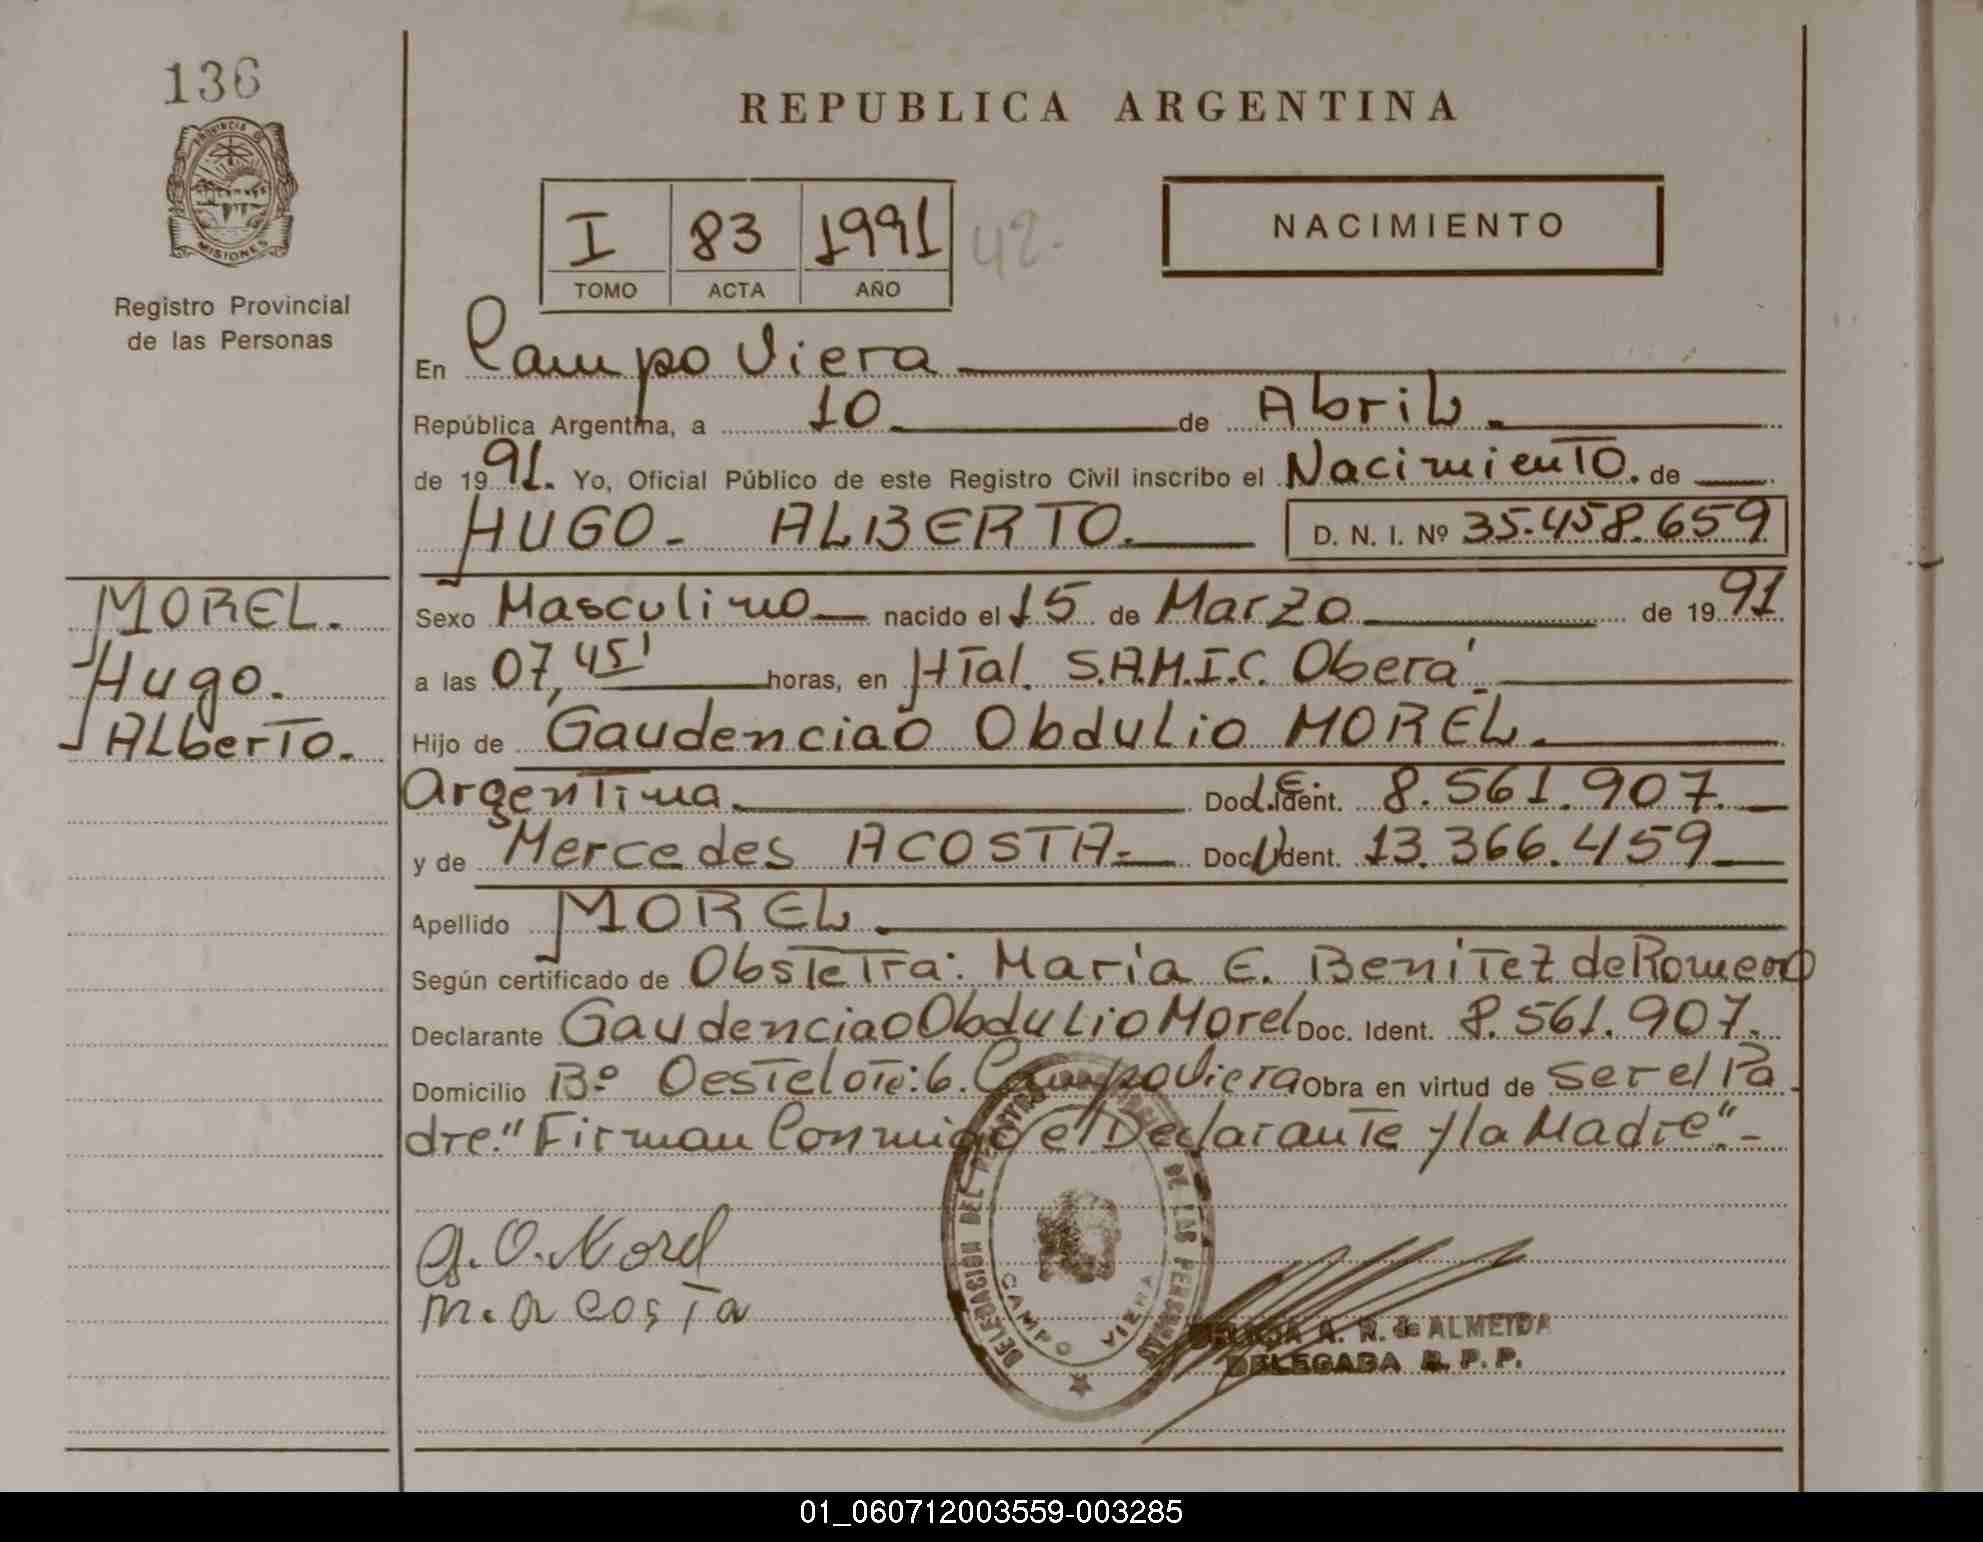 136
PROVINCIA DE
MISIONES
Registro Provincial
de las Personas
REPUBLICA ARGENTINA
I 83 1991 42.
TOMO ACTA AÑO
NACIMIENTO
En Campo Viera
República Argentina, a 10 de Abril.
de 1991. Yo, Oficial Público de este Registro Civil inscribo el Nacimiento. de
HUGO - ALBERTO. D. N. I. Nº 35.458.659
MOREL.
Hugo.
Alberto.
Sexo Masculino nacido el 15 de Marzo de 1991
a las 07,45' horas, en Htal. S.A.M.I.C. Oberá.
Hijo de Gaudenciao Obdulio MOREL.
Argentina. Doc. Ident. L.E. 8.561.907.
y de Mercedes ACOSTA.- Doc. Ident. 13.366.459
Apellido MOREL.
Según certificado de Obstetra: María E. Benitez de Romero
Declarante Gaudenciao Obdulio Morel Doc. Ident. 8.561.907.
Domicilio Bº Oeste lote:6. Campo Viera Obra en virtud de ser el Pa
dre." Firman Conmigo el Declarante y la Madre".-
G. O. Morel
M. Acosta
DELEGACION DEL REGISTRO DE LAS PERSONAS
CAMPO VIERA
A. R. de ALMEIDA
DELEGADA R. P. P.
01_060712003559-003285